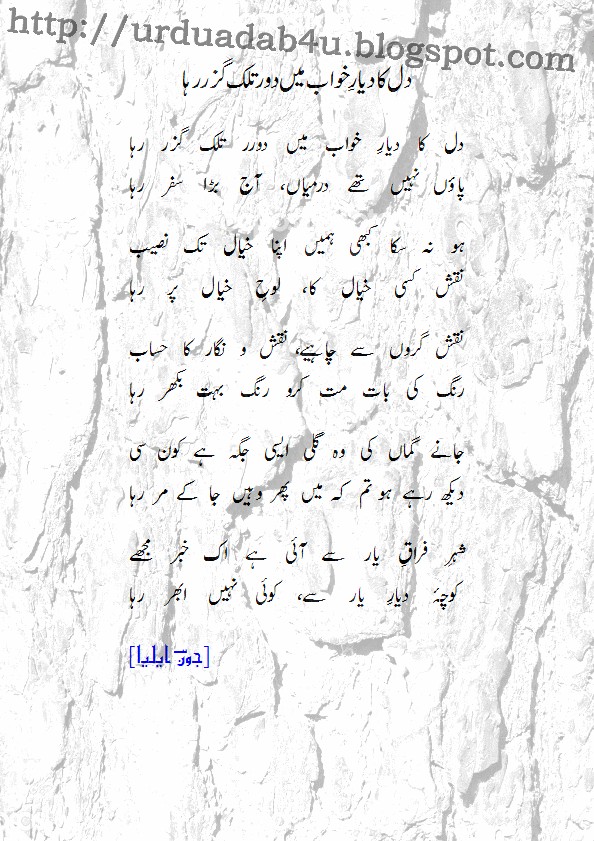 http://urduadab4u.blogspot.com
دل کا دیارِ خواب میں دور تلک گزر رہا
دل کا دیارِ خواب میں دورر تلک گزر رہا
پاؤں نہیں تھے درمیاں، آج بڑا سفر رہا
ہو نہ سکا کبھی ہمیں اپنا خیال تک نصیب
نقش کسی خیال کا، لوحِ خیال پر رہا
نقش گروں سے چاہیے، نقش و نگار کا حساب
رنگ کی بات مت کرو رنگ بہت بکھر رہا
جانے گماں کی وہ گلی ایسی جگہ ہے کون سی
دیکھ رہے ہو تم کہ میں پھر وہیں جا کے مر رہا
شہرِ فراقِ یار سے آئی ہے اک خبر مجھے
کوچۂ دیارِ یار سے، کوئی نہیں ابھر رہا
[جونؔ ایلیا]